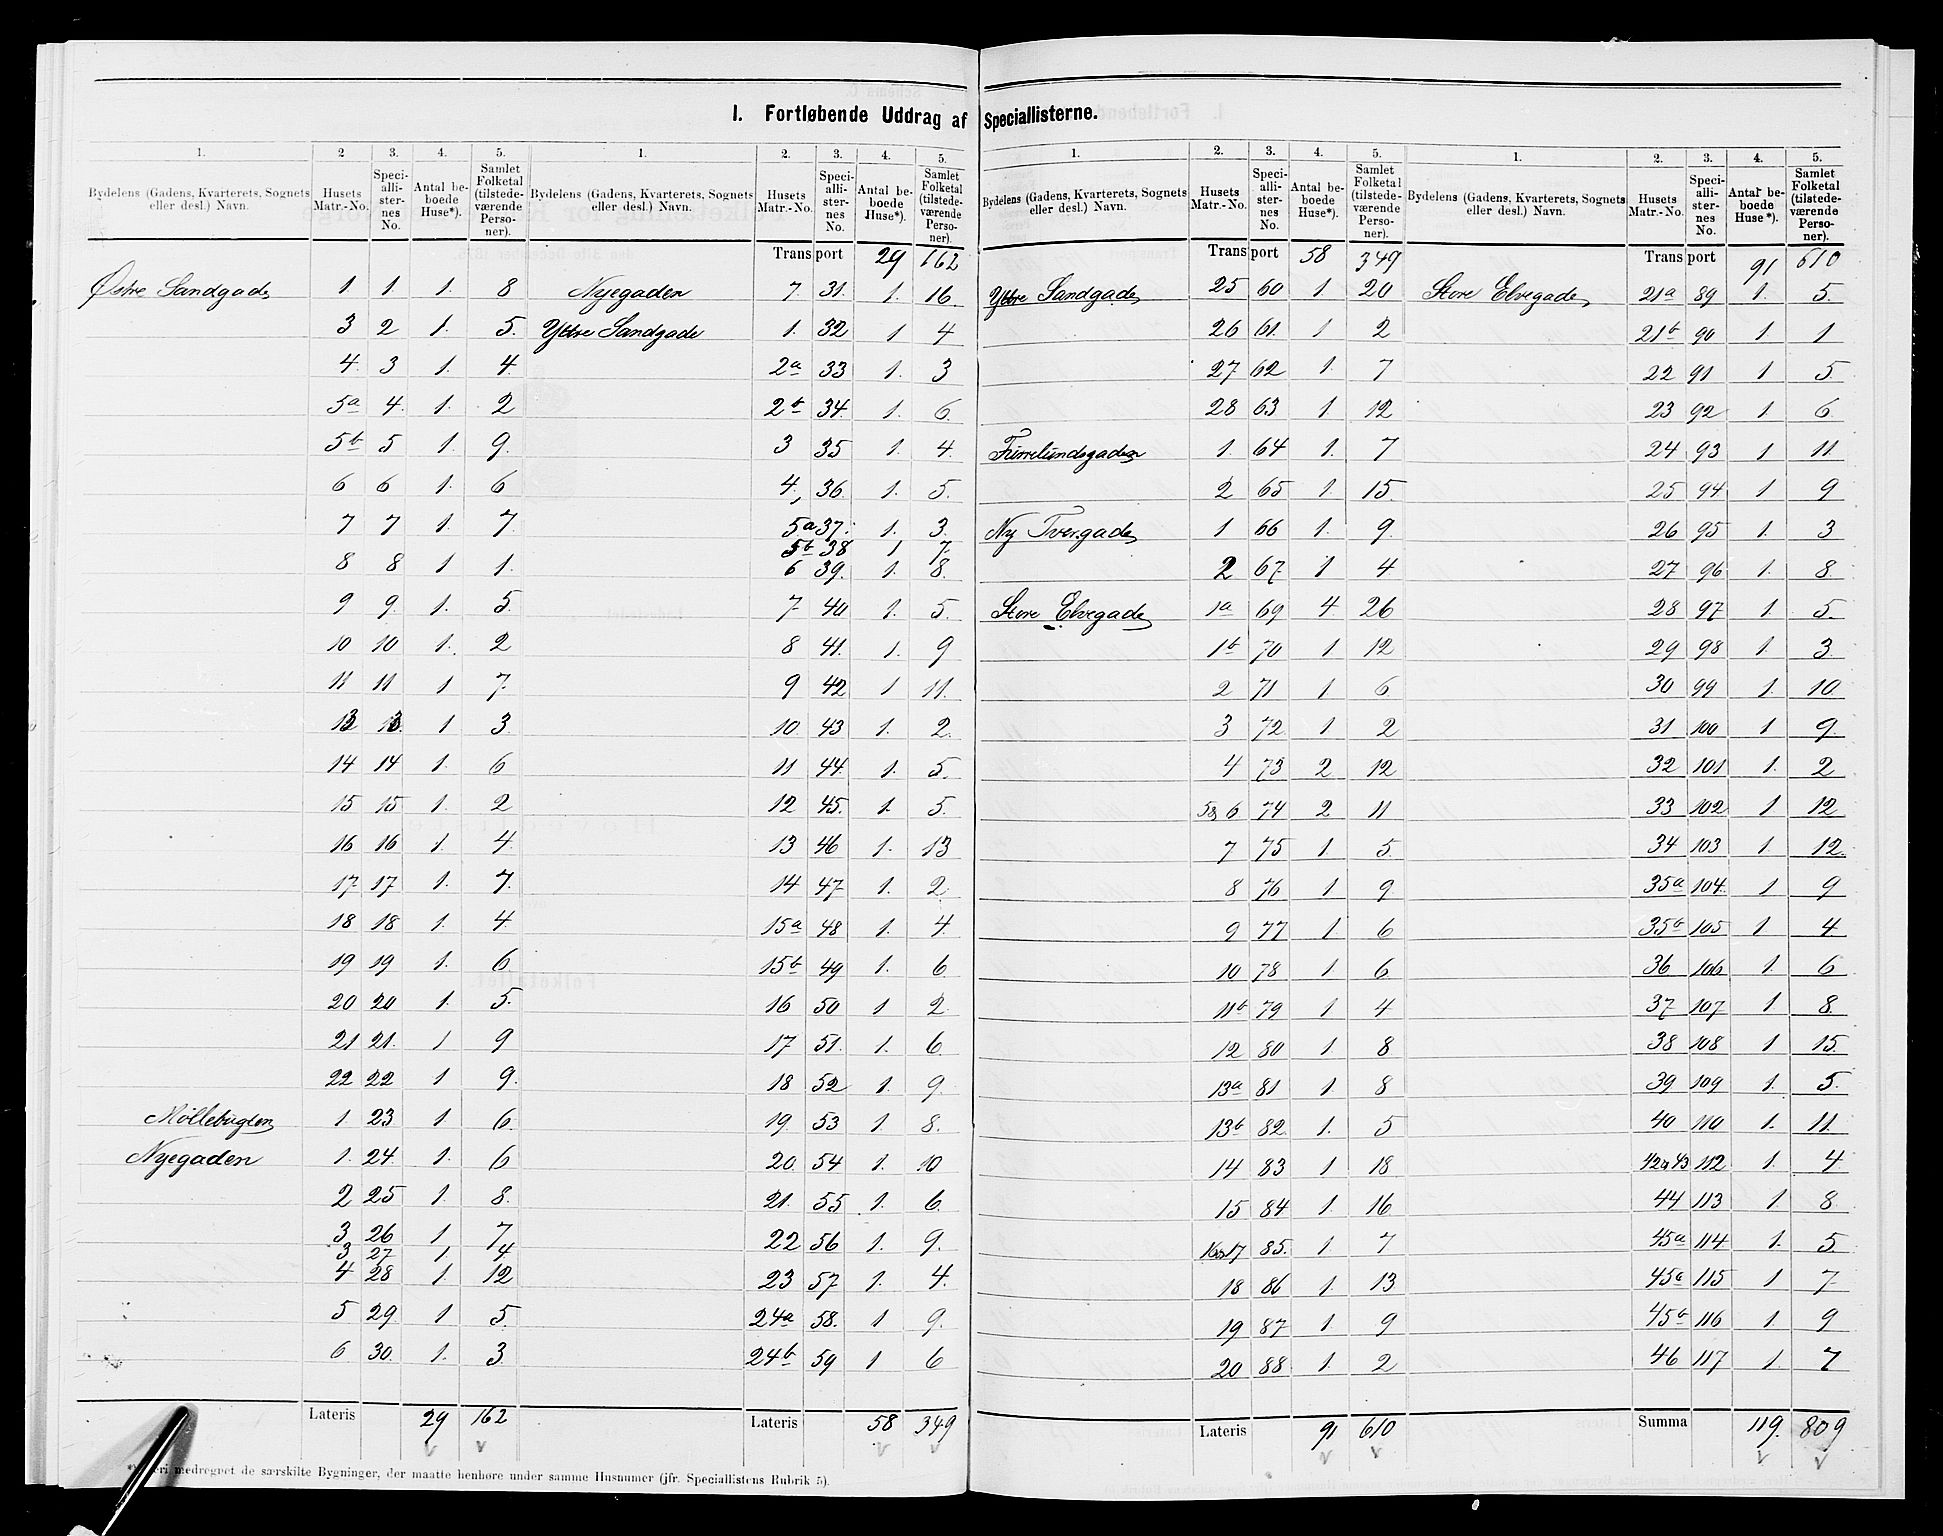 I. Fortløbende Uddrag af Speciallisterne.
1. 2 3. 4. 5.
Bydelens (Gadens, Kvarterets, Sognets eller desl.) Navn. Husets Matr.-No. Speci-alli-ster-nes No. Antal be-boede Huse*). Samlet Folketal (tilstede-værende Perso-ner).
Østre Sandgade 1 1 1. 8
3 2 1. 5.
4. 3 1. 4
5a 4. 1. 2
5b 5 1. 9.
6 6 1. 6
7 7 1. 7.
8 8 1 1.
9 9. 1. 5.
10 10 1. 2
11 11 1 7.
13 13. 1 3.
14 14 1. 6
15 15 1. 2
16 16 1. 4
17 17 1. 7.
18 18 1. 4.
19 19 1. 6
20 20 1. 5.
21 21. 1 9
22 22 1 9.
Møllebugten 1 23 1 6.
Nyegaden 1. 24. 1. 6
2 25 1. 8.
3 26 1 7
3 27 1 4
4 28 1 12
5 29 1 5.
6 30. 1. 3.
Lateris 29 162
1. 2. 3. 4. 5.
Bydelens (Gadens, Kvarterets, Sognets eller desl.) Navn. Husets Matr.-No. Speci-alli-ster-nes No. Antal be-boede Huse*). Samlet Folketal (tilstede-værende Perso-ner).
Transport 29 162
Nyegaden 7 31. 1. 16.
Ydre Sandgade 1. 32 1 4
2a 33 1. 3
2b 34. 1. 6.
3 35 1. 4.
4. 36. 1. 5.
5a 37. 1. 3.
5b 38 1 7.
6 39. 1. 8.
7. 40 1. 5.
8 41. 1. 9
9 42 1 11.
10. 43 1. 2.
11 44. 1. 5.
12 45. 1. 5.
13 46 1. 13
14 47 1. 2.
15a 48 1. 4.
15b 49 1. 6
16 50 1 2
17 51. 1. 6.
18 52 1. 9.
19. 53 1 8.
20. 54 1. 10
21. 55 1. 6.
22 56 1. 9.
23 57 1. 4.
24a 58. 1 9.
24b 59 1 6
Lateris 58 349
*) Heri medregnet de særskilte Bygninger, der maatte henhøre under samme Husnumer (jfr. Speciallistens Rubrik 5).
1. 2. 3. 4. 5.
Bydelens (Gadens, Kvarterets, Sognets eller desl.) Navn. Husets Matr.-No. Speci-alli-ster-nes No. Antal be-boede Huse*). Samlet Folketal (tilstede-værende Perso-ner).
Transport 58 349
Ydre Sandgade 25 60 1 20
26 61. 1 2
27 62 1. 7
28 63 1 12
1. 64 1. 7
2 65 1. 15.
Ny Tvergade 1 66 1. 9.
2 67. 1 4
Store Elvegade 1a 69 4 26
1b 70 1 12
2 71 1 6
3 72 1 2
4 73 2 12
5&6 74 2 11
7 75 1 5.
8 76 1 9
9 77 1 6
10 78 1 6.
11b 79 1 4
12 80 1. 8
13a 81 1 8
13b 82. 1. 5
14 83 1 18
15 84 1. 16
16&17 85. 1. 7
18 86 1. 13
19 87 1. 9
20 88 1. 2
Lateris 91 610
1. 2. 3. 4. 5.
Bydelens (Gadens, Kvarterets, Sognets eller desl.) Navn. Husets Matr.-No. Speci-alli-ster-nes No. Antal be-boede Huse*). Samlet Folketal (tilstede-værende Perso-ner).
Transport 91 610
Store Elvegade 21a 89 1. 5.
21b 90 1. 1
22 91 1 5.
23 92 1. 6.
24 93 1 11.
25 94 1 9
26 95 1. 3
27 96 1. 8.
28 97 1. 5.
29 98 1. 3.
30 99 1. 10.
31 100 1 9.
32 101 1. 2
33 102 1 12
34 103 1. 12.
35a 104. 1 9
35b 105 1 4
36 106 1. 6
37 107 1 8.
38 108 1 15.
39 109 1. 5.
40 110 1. 11.
42&43 112 1. 4
44 113 1 8.
45a 114 1. 5.
45a 115 1 7
45b 116 1. 9
46 117 1. 7
Summa 119. 809